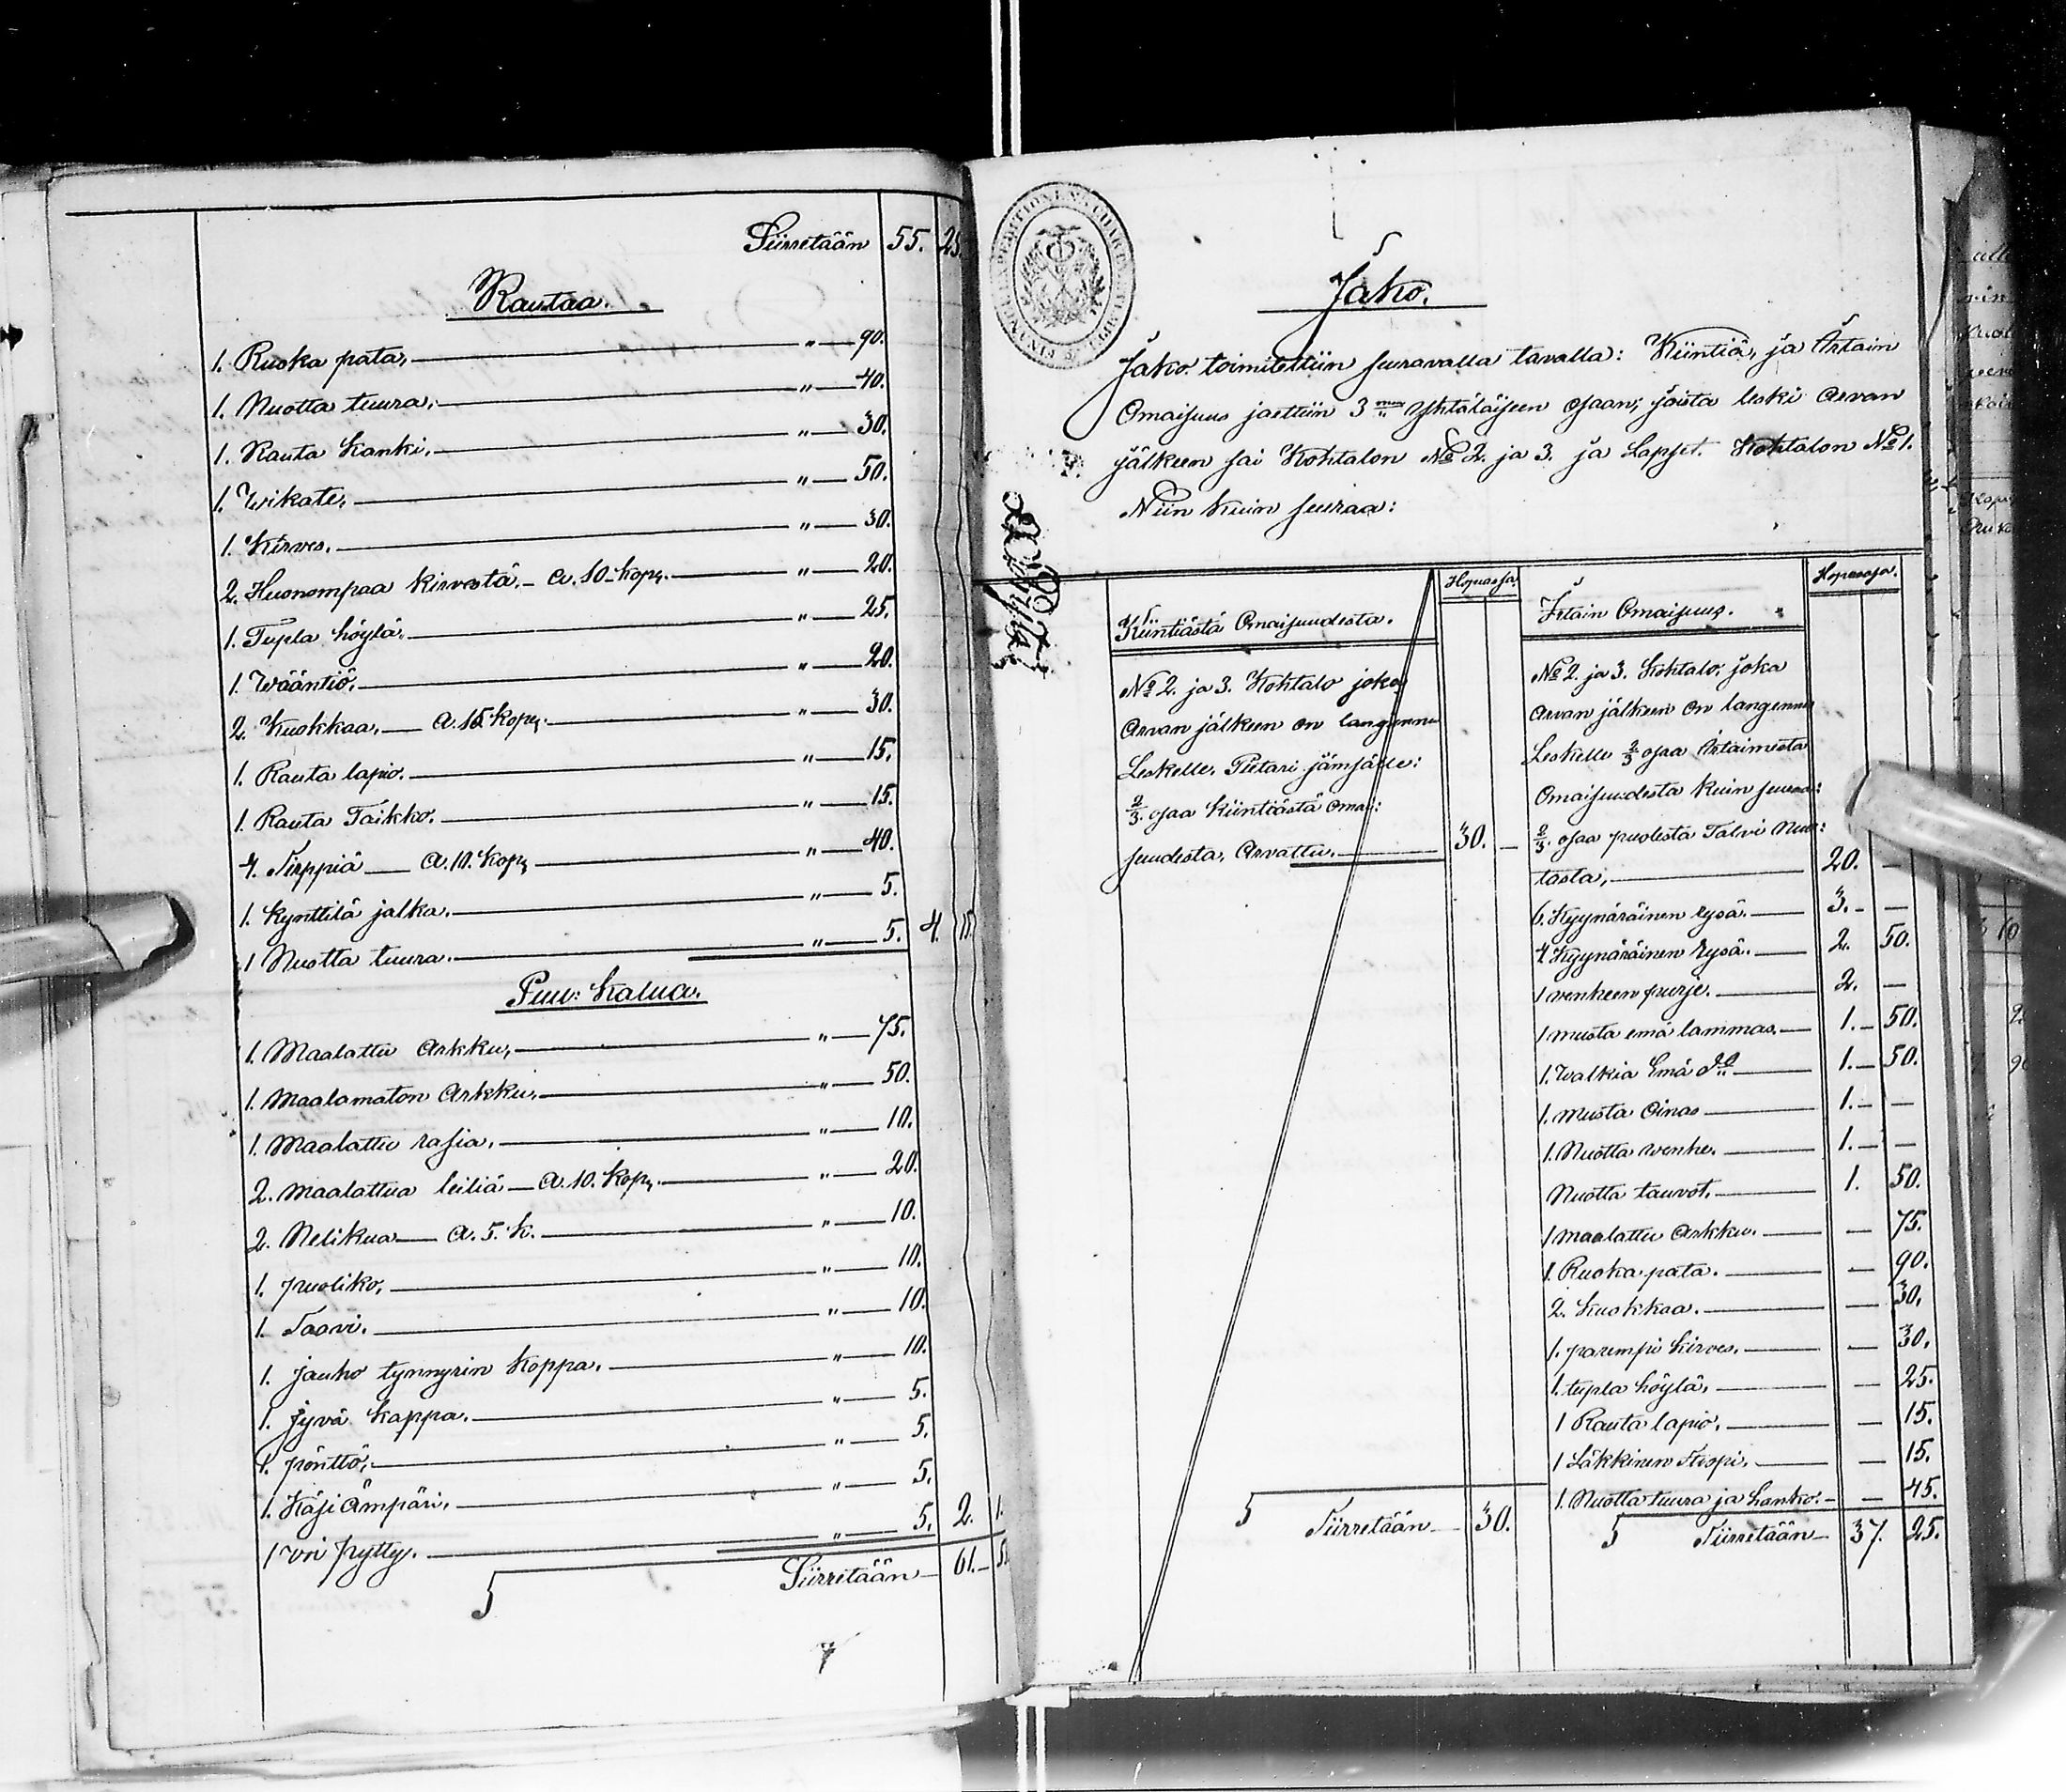 Siirretään 55. 25.
Rautaa.
1. Ruoka pata, " 90.
1. Nuotta tuura. " 40.
1. Rauta kanki. " 30.
1. Wikate. " 50.
1. Kirves. " 30.
2. Huonompaa kirvestä. - a. 10 - kopq. " 20.
1. Tupla höylä. " 25.
1. Wääntiö. " 20.
2. Kuokkaa. a. 15 kopq. " 30.
1. Rauta lapio. " 15.
1. Rauta Taikko. " 15.
4. Sirppiä a. 10. kopq " 40.
1. Kynttilä jalka. " 5.
1 Nuotta tuura. " 5. 4. 15.
Puu: Kalua.
1. Maalattu Arkku, " 75.
1. Maalamaton Arkku. " 50.
1. Maalattu rasia. " 10.
2. Maalattua leiliä - a. 10. kopq. " 20.
2. Nelikua a. 5. k. " 10.
1. puoliko. " 10.
1. Saavi. " 10.
1. jauho tynnyrin koppa. " 10.
1. jyvä kappa. " 5.
1. pönttö. " 5.
1. Käsi Ämpäri. " 5.
1 vri pytty. " 5. 2. 1.
Siirretään 61. 5
Jako.
Jako toimitettiin seuravalla tavalla: Kiintiä, ja Irtain
Omaisuus jaettiin 3 men Yhtäläiseen osaan; joista leski arvan
jälkeen sai Kohtalon No 2. ja 3. ja Lapset. Kohtalon No 1.
Niin kuin seuraa:
Kiintiästä Omaisuudesta. Hopiassa.
No 2. ja 3. Kohtalo joka
Arvan jälkeen on langennu
Leskelle. Pietari jämsälle:
2/3. osaa kiintiästä omai:
suudesta, Arvattu. 30. -
Siirretään 30.
Irtain Omaisuus. Hopiassa.
No 2. ja 3. Kohtalo, joka
arvan jälkeen on langennu
Leskelle 2/3 osaa Irtaimesta
Omaisuudesta kuin seuraa:
2/3. osaa puolesta Talvi Nuo:
tasta, 20. -
6. Kyynäräinen rysä. 3. -
4. Kyynäräinen rysä. 2. 50.
1 venheen purje. 2. -
1 musta emä lammas. 1. - 50.
1. Walkia Emä do 1. - 50.
1. musta Oinas 1. -
1. Nuotta wenhe. 1. -
Nuotta tauvot. 1. 50.
1 maalattu Arkku. - 75.
1. Ruoka pata. - 90.
2. kuokkaa. - 30.
1. parempi kirves. - 30.
1. tupla höylä. - 25.
1 Rauta lapio. - 15.
1 Läkkinen Stopi. - 15.
1. Nuotta tuura ja hanko. - 45.
Siirretään 37. 25.